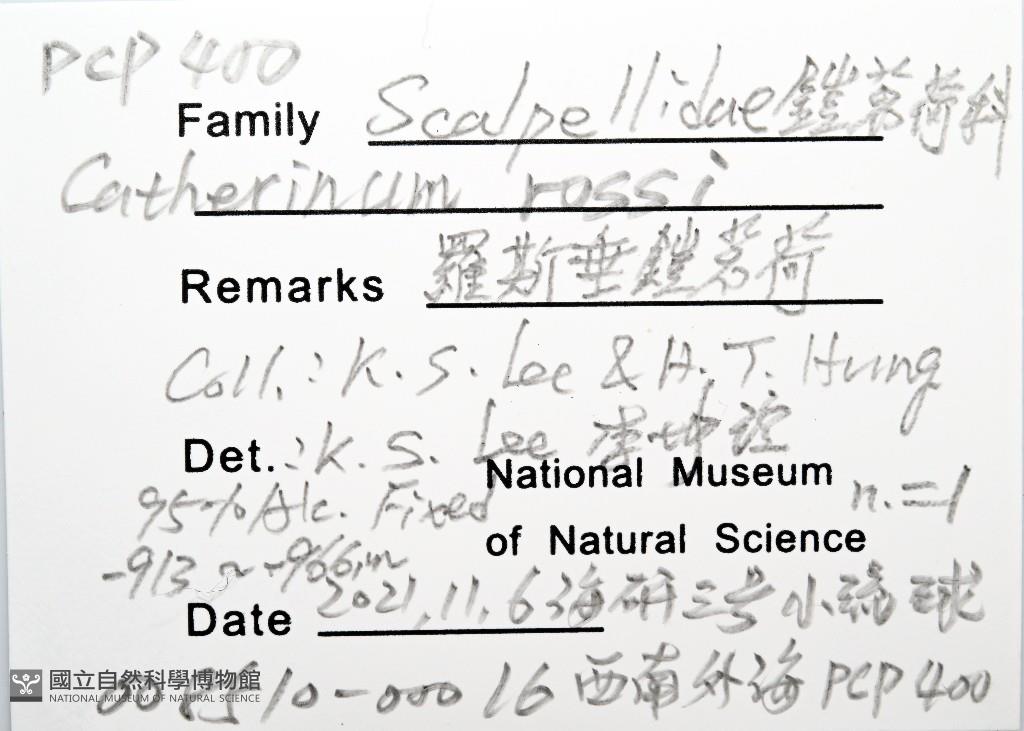 PCP 400
Family Scalpellidae 鎧茗荷科
Catherinum rossi
Remarks 羅斯垂鎧茗荷
Coll.: K. S. Lee & H. T. Hung
Det.: K. S. Lee 李坤瑄
National Museum
95% Alc. Fixed n.=1
of Natural Science
-913 ~ -966m
Date 2021.11.6 海研三号 小琉球
10-00016 西南外海 PCP 400
國立自然科學博物館
NATIONAL MUSEUM OF NATURAL SCIENCE